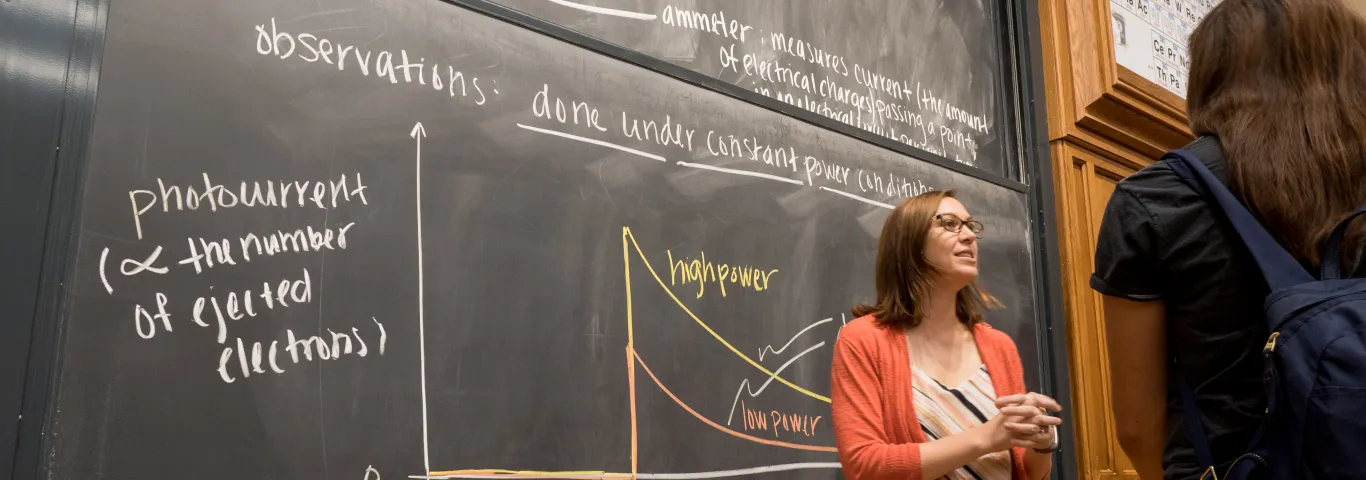 ammeter: measures current (the amount
of electrical charges) passing a point
in an electrical circuit
observations: done under constant power conditions
photocurrent
(∝ the number
of ejected
electrons)
high power
low power
0
Ac
Ce Pr
Th Pa